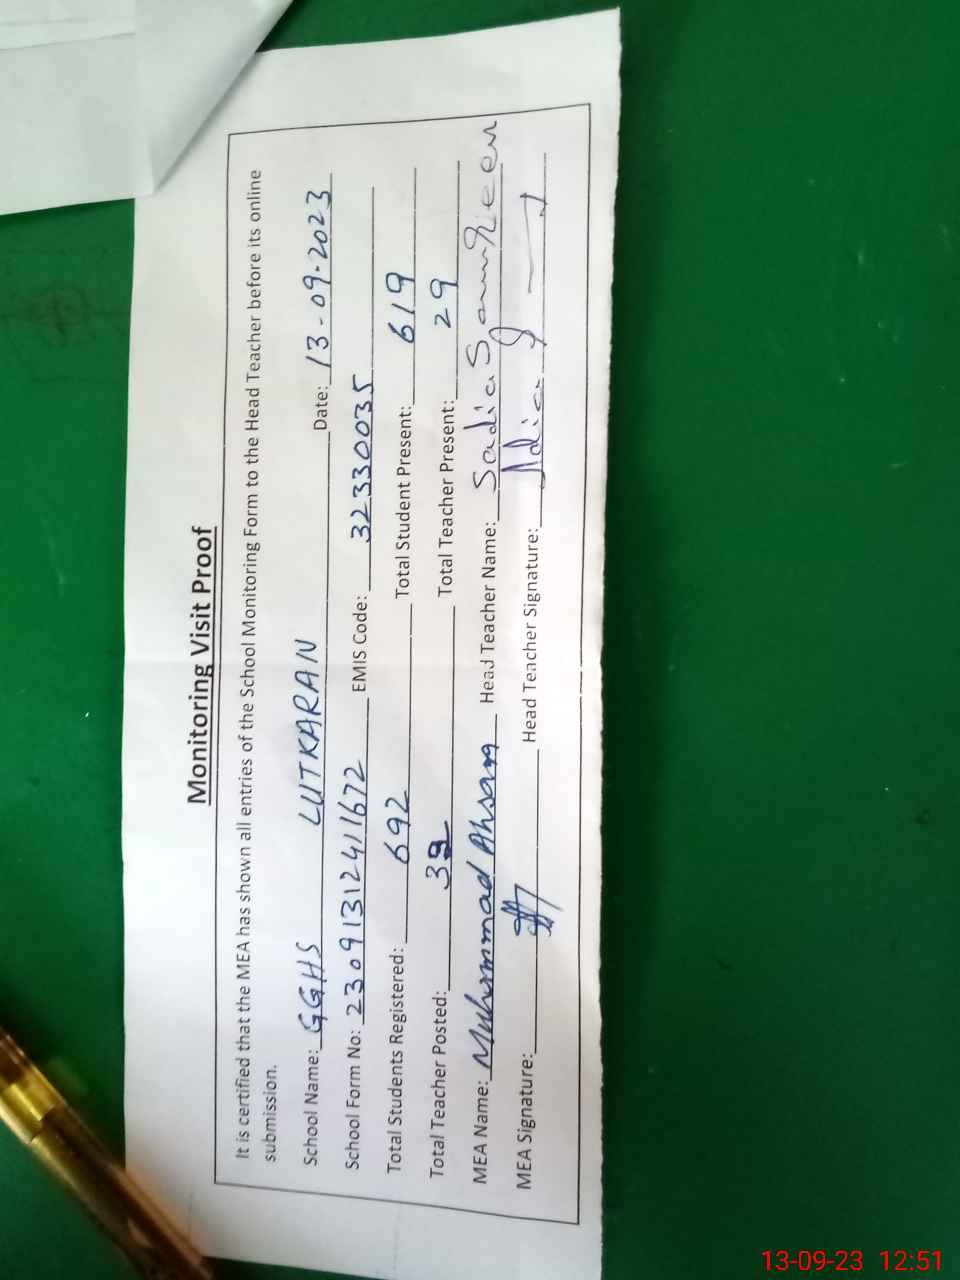 Monitoring Visit Proof
It is certified that the MEA has shown all entries of the School Monitoring Form to the Head Teacher before its online
submission.
School Name: GGHS LUTKARAN Date: 13-09-2023
School Form No: 23091312411672 EMIS Code: 32330035
Total Students Registered: 692 Total Student Present: 619
Total Teacher Posted: Total Teacher Present: 29
MEA Name: Muhammad Ahsan Head Teacher Name: Sadia
MEA Signature: Head Teacher Signature:
13-09-23 12:51